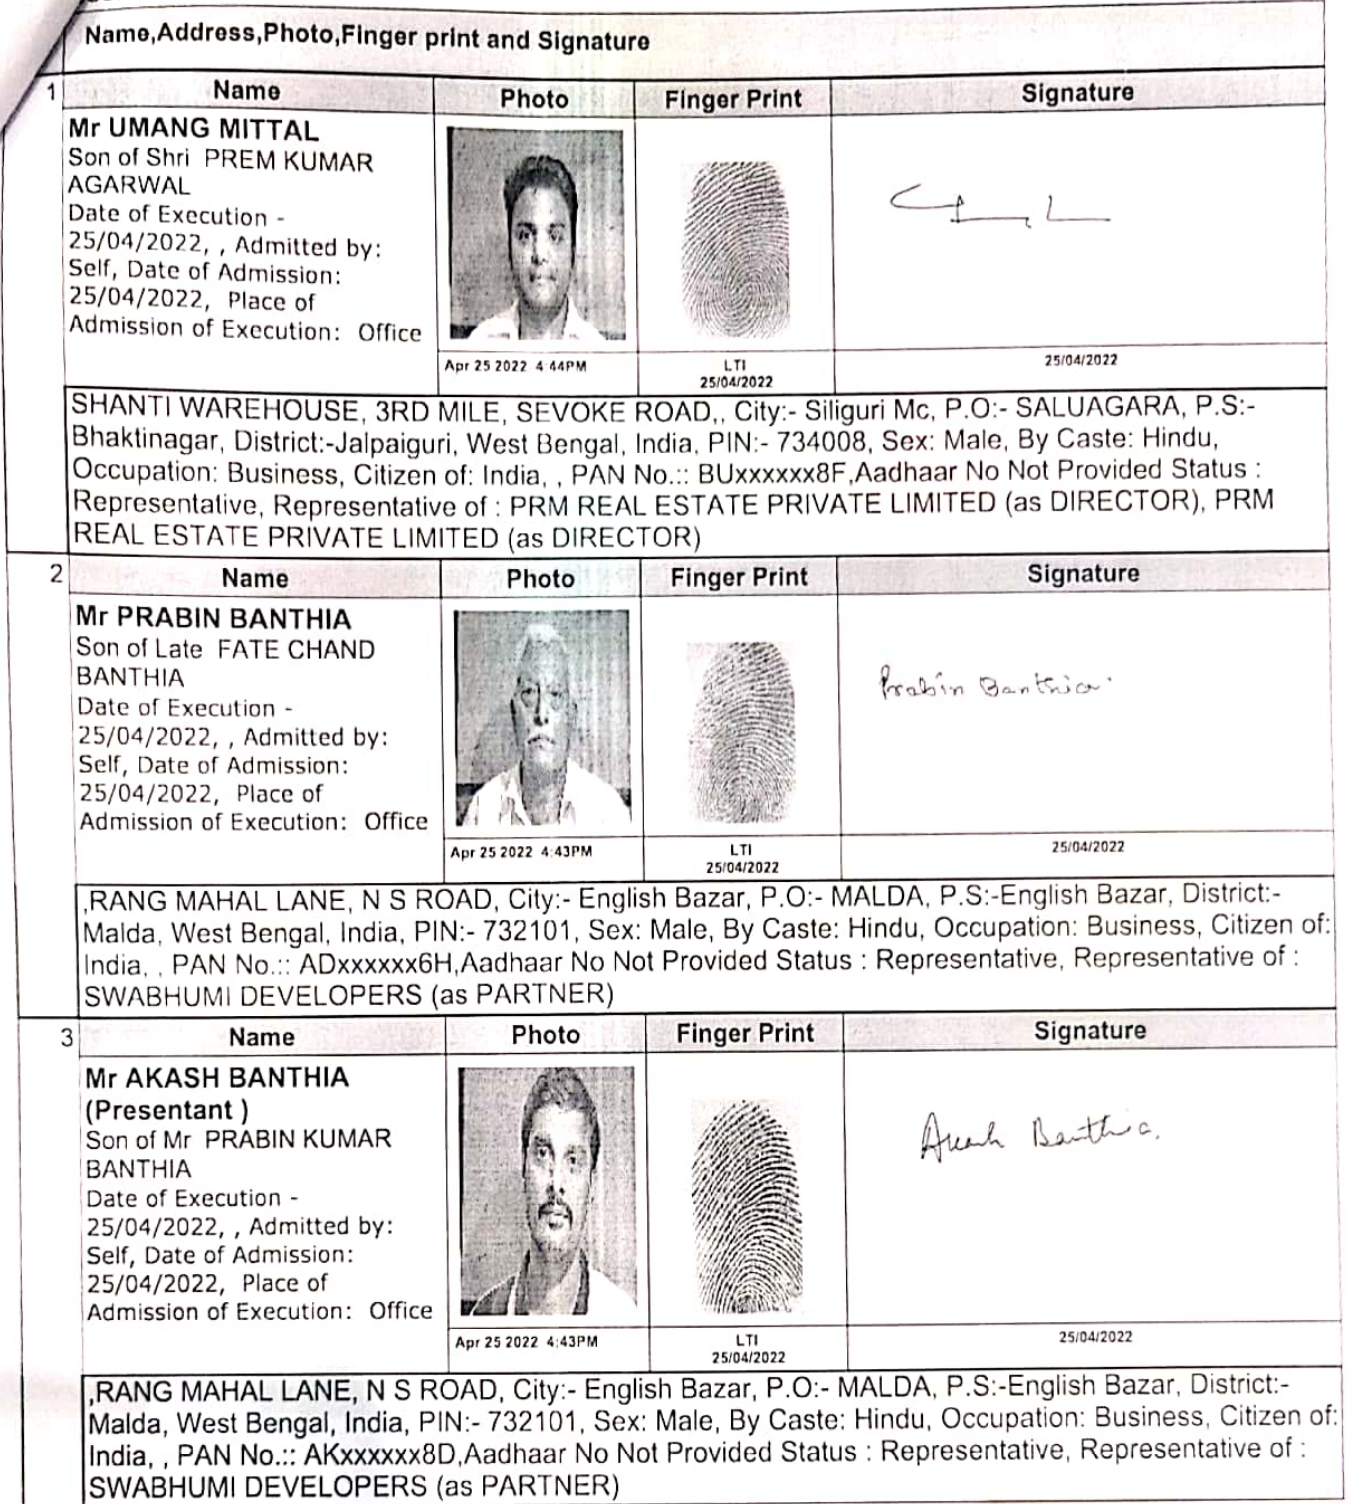 Name,Address,Photo,Finger print and Signature
1 Name Photo Finger Print Signature
Mr UMANG MITTAL
Son of Shri PREM KUMAR
AGARWAL
Date of Execution -
25/04/2022, , Admitted by:
Self, Date of Admission:
25/04/2022, Place of
Admission of Execution: Office
Apr 25 2022 4:44PM LTI 25/04/2022
25/04/2022
SHANTI WAREHOUSE, 3RD MILE, SEVOKE ROAD,, City:- Siliguri Mc, P.O:- SALUAGARA, P.S:-
Bhaktinagar, District:-Jalpaiguri, West Bengal, India, PIN:- 734008, Sex: Male, By Caste: Hindu,
Occupation: Business, Citizen of: India, , PAN No.:: BUxxxxxx8F,Aadhaar No Not Provided Status :
Representative, Representative of : PRM REAL ESTATE PRIVATE LIMITED (as DIRECTOR), PRM
REAL ESTATE PRIVATE LIMITED (as DIRECTOR)
2 Name Photo Finger Print Signature
Mr PRABIN BANTHIA
Son of Late FATE CHAND
BANTHIA
Date of Execution -
25/04/2022, , Admitted by:
Self, Date of Admission:
25/04/2022, Place of
Admission of Execution: Office
Prabin Banthia
Apr 25 2022 4:43PM LTI 25/04/2022
25/04/2022
,RANG MAHAL LANE, N S ROAD, City:- English Bazar, P.O:- MALDA, P.S:-English Bazar, District:-
Malda, West Bengal, India, PIN:- 732101, Sex: Male, By Caste: Hindu, Occupation: Business, Citizen of:
India, , PAN No.:: ADxxxxxx6H,Aadhaar No Not Provided Status : Representative, Representative of :
SWABHUMI DEVELOPERS (as PARTNER)
3 Name Photo Finger Print Signature
Mr AKASH BANTHIA
(Presentant )
Son of Mr PRABIN KUMAR
BANTHIA
Date of Execution -
25/04/2022, , Admitted by:
Self, Date of Admission:
25/04/2022, Place of
Admission of Execution: Office
Akash Banthia.
Apr 25 2022 4:43PM LTI 25/04/2022
25/04/2022
,RANG MAHAL LANE, N S ROAD, City:- English Bazar, P.O:- MALDA, P.S:-English Bazar, District:-
Malda, West Bengal, India, PIN:- 732101, Sex: Male, By Caste: Hindu, Occupation: Business, Citizen of:
India, , PAN No.:: AKxxxxxx8D,Aadhaar No Not Provided Status : Representative, Representative of :
SWABHUMI DEVELOPERS (as PARTNER)